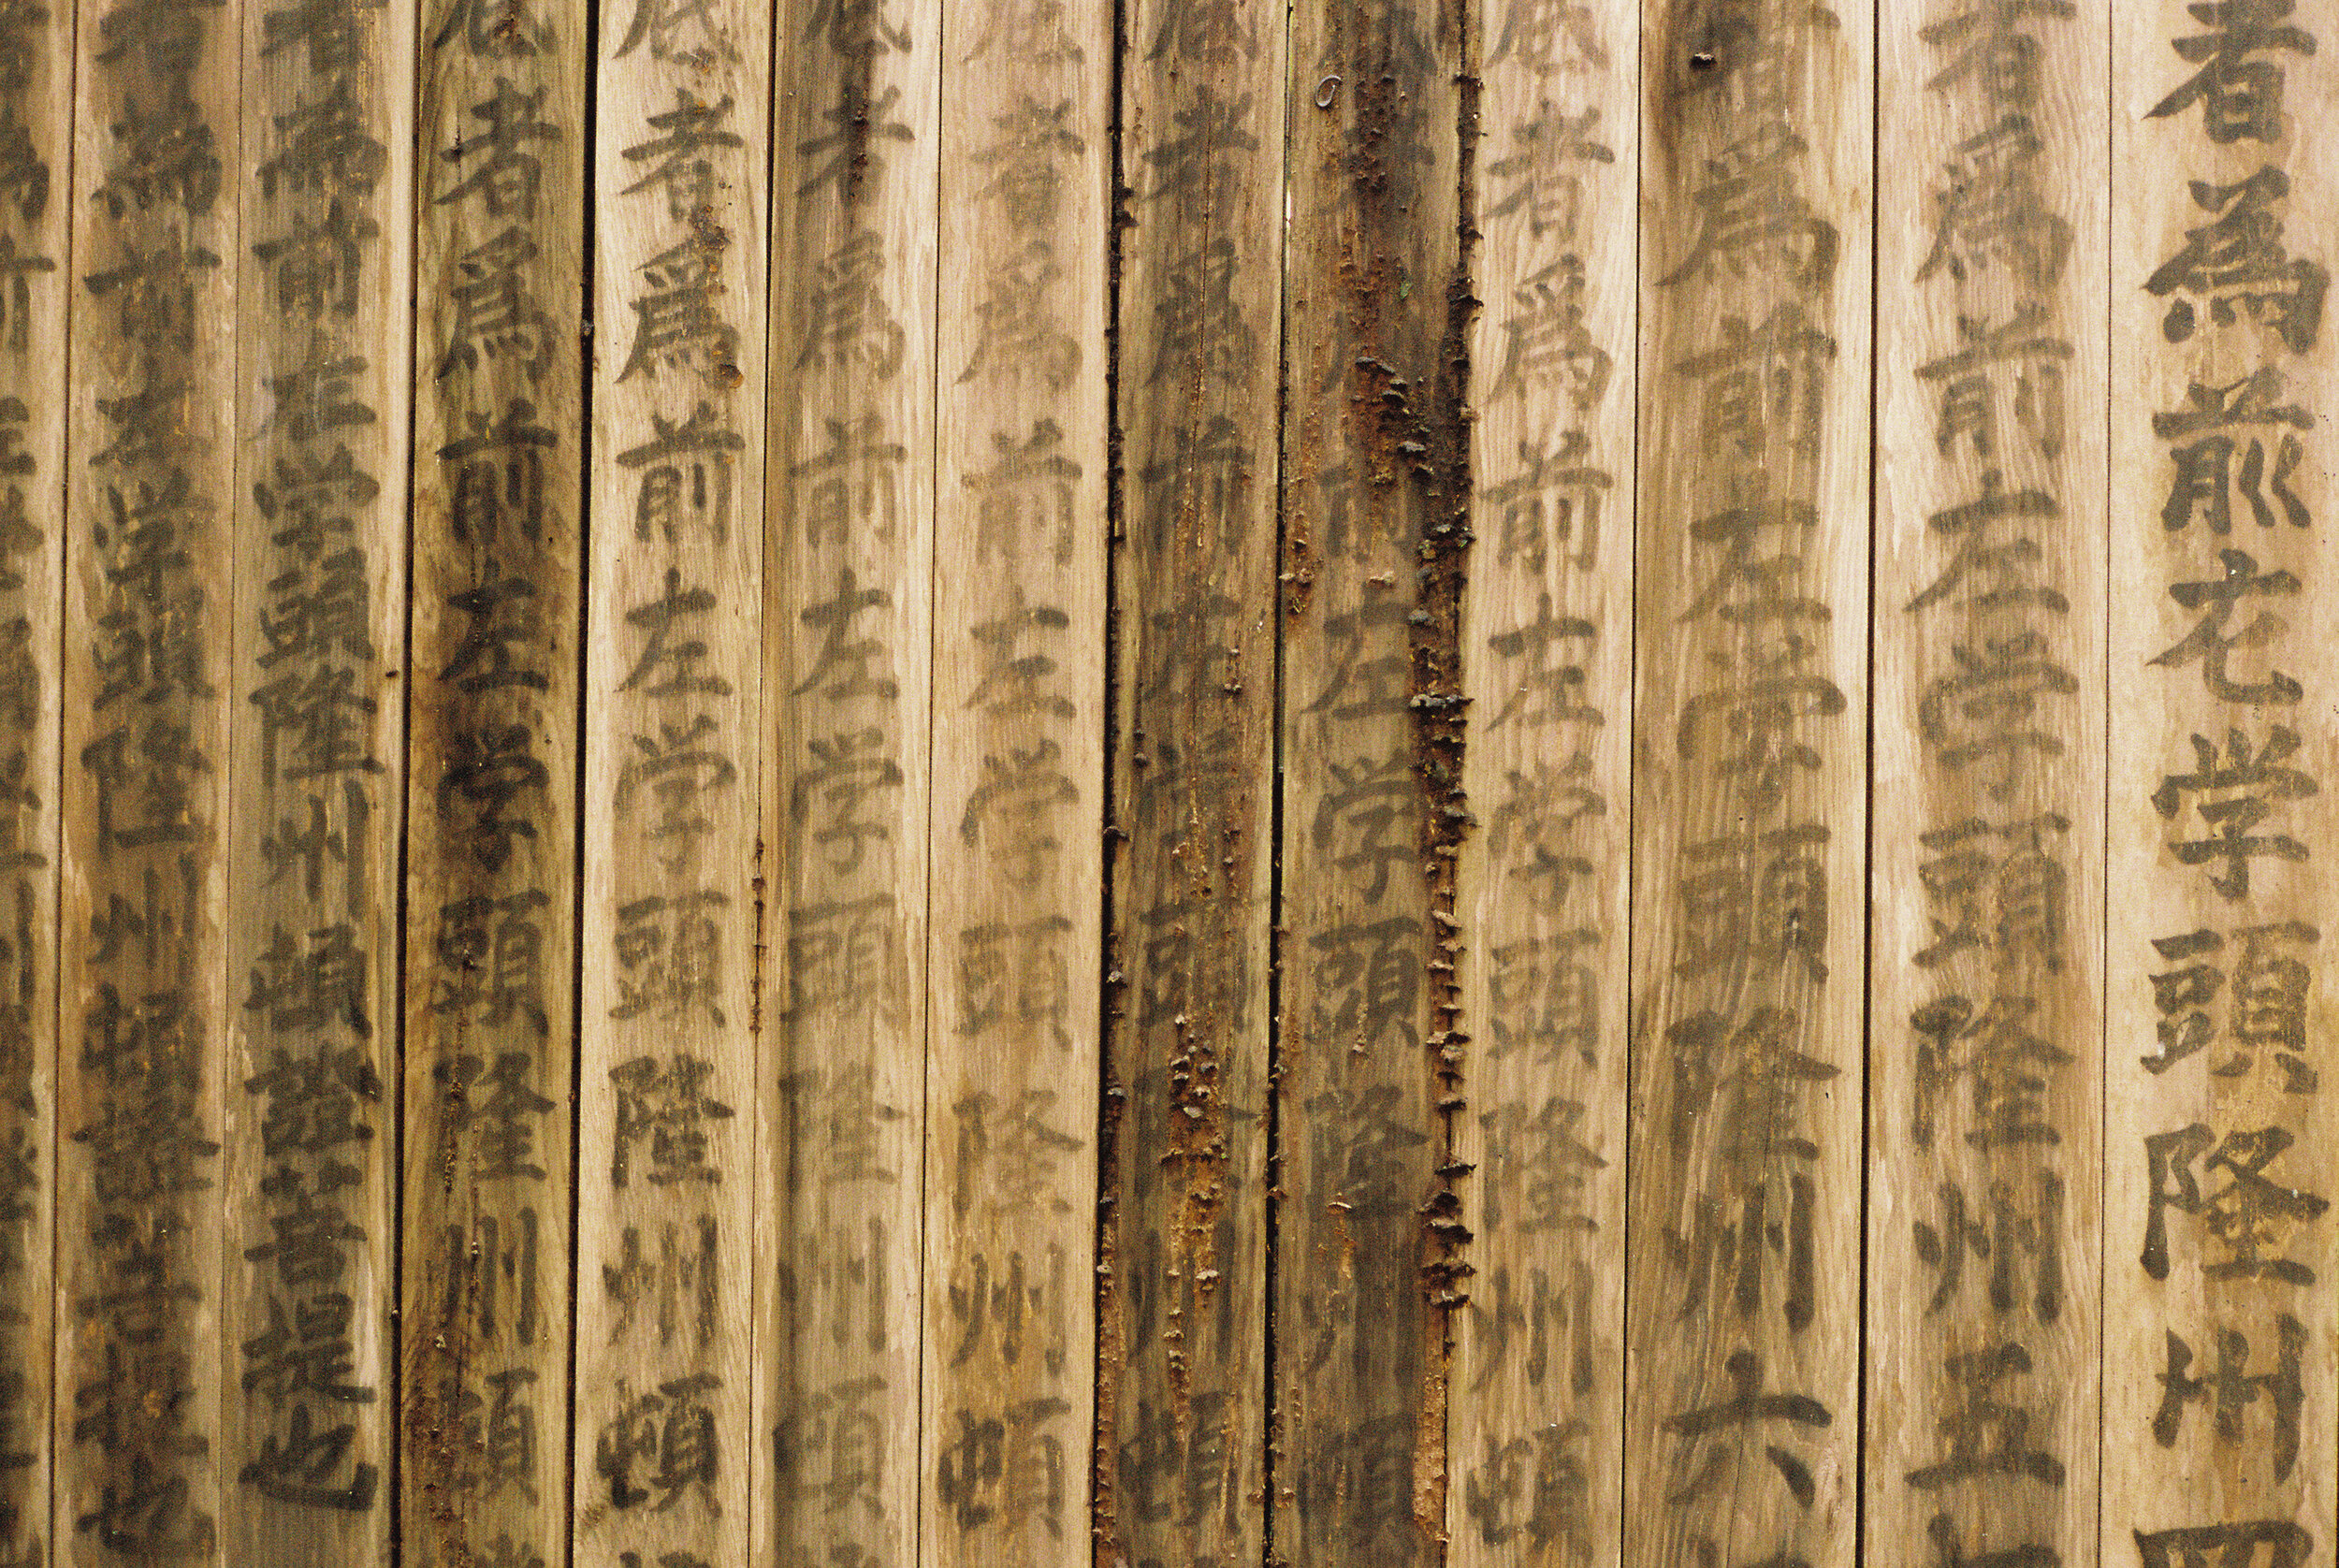 者爲前左学頭隆州四
者爲前左学頭隆州五
者爲前左学頭隆州六
者爲前左学頭隆州頓
者爲前左学頭隆州頓
者爲前左学頭隆州頓
者爲前左学頭隆州頓
者爲前左学頭隆州頓
者爲前左学頭隆州頓
者爲前左学頭隆州頓
者爲前左学頭隆州頓證菩提也
者爲前左学頭隆州頓證菩提也